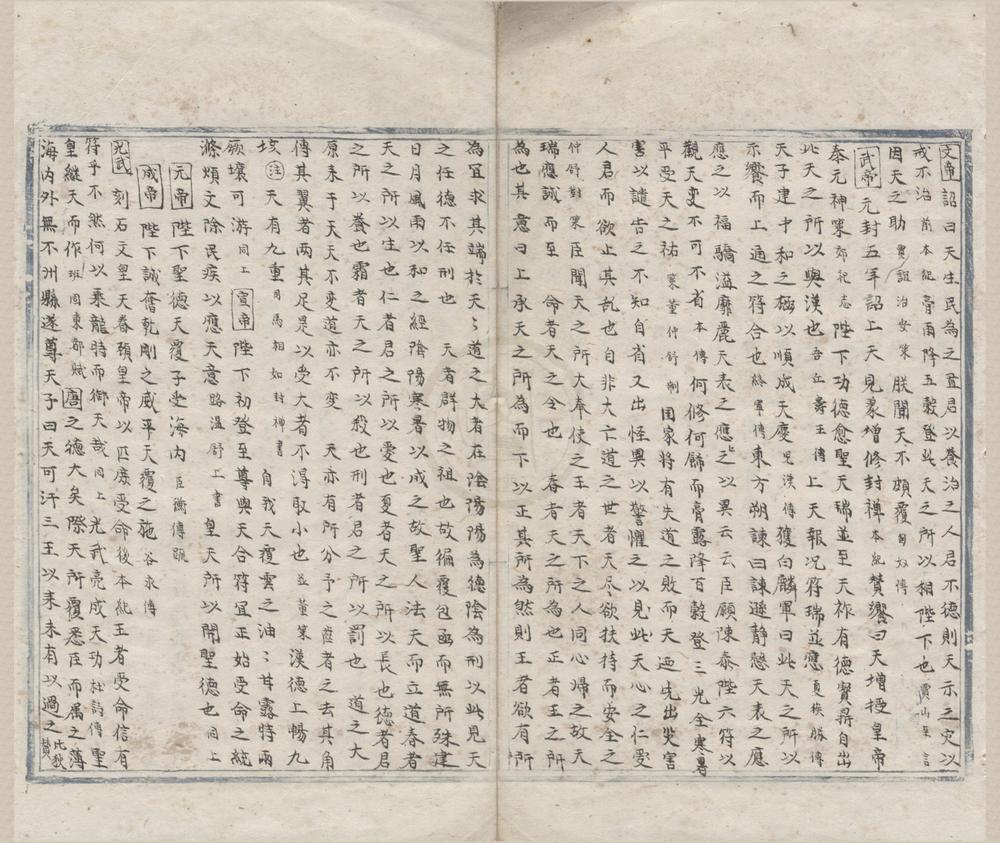 文帝詔曰天生民為之置君以養治之人君不德則天示之災以
戒不治前本紀膏雨降五穀登此天之所以相陛下也賈山至言
因天之助賈誼治安策朕聞天不頗覆匈奴傳
武帝元封五年詔上天見象增修封禅本紀贊饗曰天增授皇帝
泰元神策郊祀志陛下功德愈聖天瑞並至天祚有德寳鼎自出
此天之所以與漢也吾丘壽王傳上天報况符瑞並應夏侯勝傳
天子建中和之極以順成天慶兒寛傳獲白麟軍曰此天之所以
示饗而上通之符合也終軍傳東方朔諫曰諫遜静慤天表之應
應之以福驕溢靡麗天表之應之以異云云臣願陳泰陛六符以
觀天变不可不省本傳何修何飾而膏露降百穀登三光全寒暑
平受天之祜策董仲舒制国家将有失道之敗而天迺先出災害
害以譴告之不知自省又出怪異以警懼之以見此天心之仁受
人君而欲止其乱也自非大亡道之世者天尽欲扶持而安全之
仲舒對策臣聞天之所大奉使之王者天下之人同心帰之故天
瑞應誠而至 命者天之令也 春者天之所為也正者王之所
為也其意曰上承天之所為而下以正其所為然則王者欲有所
為宜求其端於天〻道之大者在陰陽陽為德陰為刑以此見天
之任德不任刑也 天者群物之祖也故徧覆包函而無所殊建
日月風雨以和之經陰陽寒暑以成之故聖人法天而立道春者
天之所以生也仁者君之所以愛也夏者天之所以長也德者君
之所以養也霜者天之所以殺也刑者君之所以罰也 道之大
原来于天天不変道亦不变 天亦有所分予之齒者之去其角
傳其翼者两其足是以受大者不得取小也並董策漢德上暢九
垓注天有九重司馬相如封禅書 自我天覆雲之油〻甘露時雨
厥壤可游同上宣帝陛下初登至尊與天合符宜正始受命之統
滌煩文除民疾以應天意路温舒上書皇天所以開聖德也同上
元帝陛下聖德天覆子坐海内匡衡傳疏
成帝陛下誠奮乾剛之威平天覆之施谷永傳
光武 刻石文皇天眷顧皇帝以匹庶受命後本紀王者受命信有
符乎不然何以乘龍時而御天哉同上光武亮成天功杜詩傳聖
皇継天而作班固東都賦唐之德大矣際天所覆悉臣而属之薄
海内外無不州縣遂尊天子曰天可汗三王以来未有以過之北狄贊